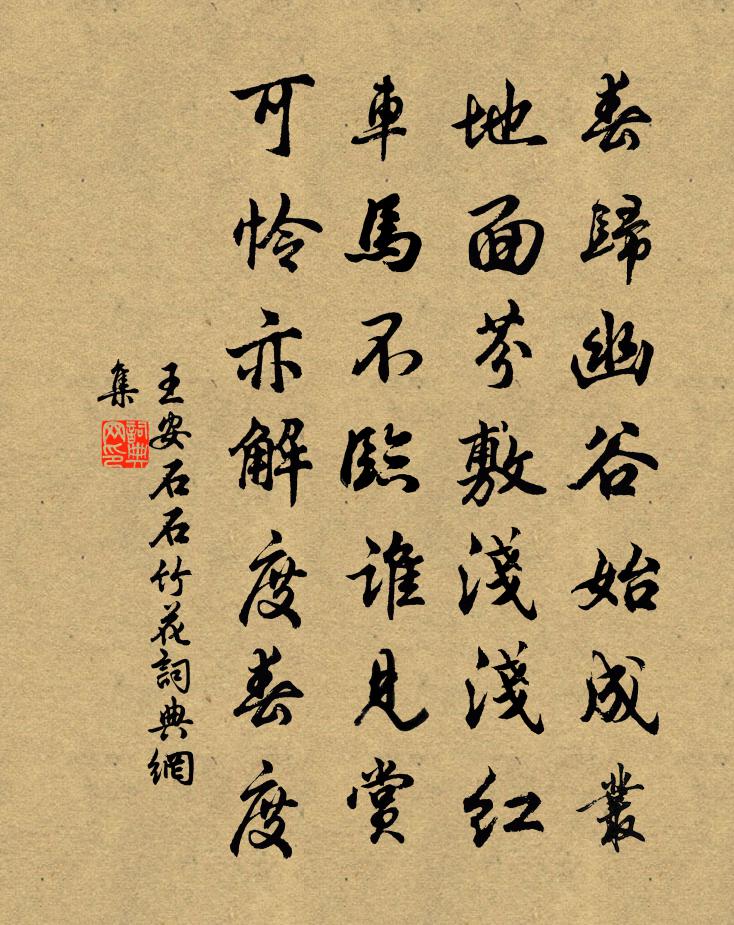 春歸幽谷始成叢
地面芬敷淺淺紅
車馬不臨誰見賞
可怜亦解度春度
王安石石竹花詞典網
集
詞典
网印